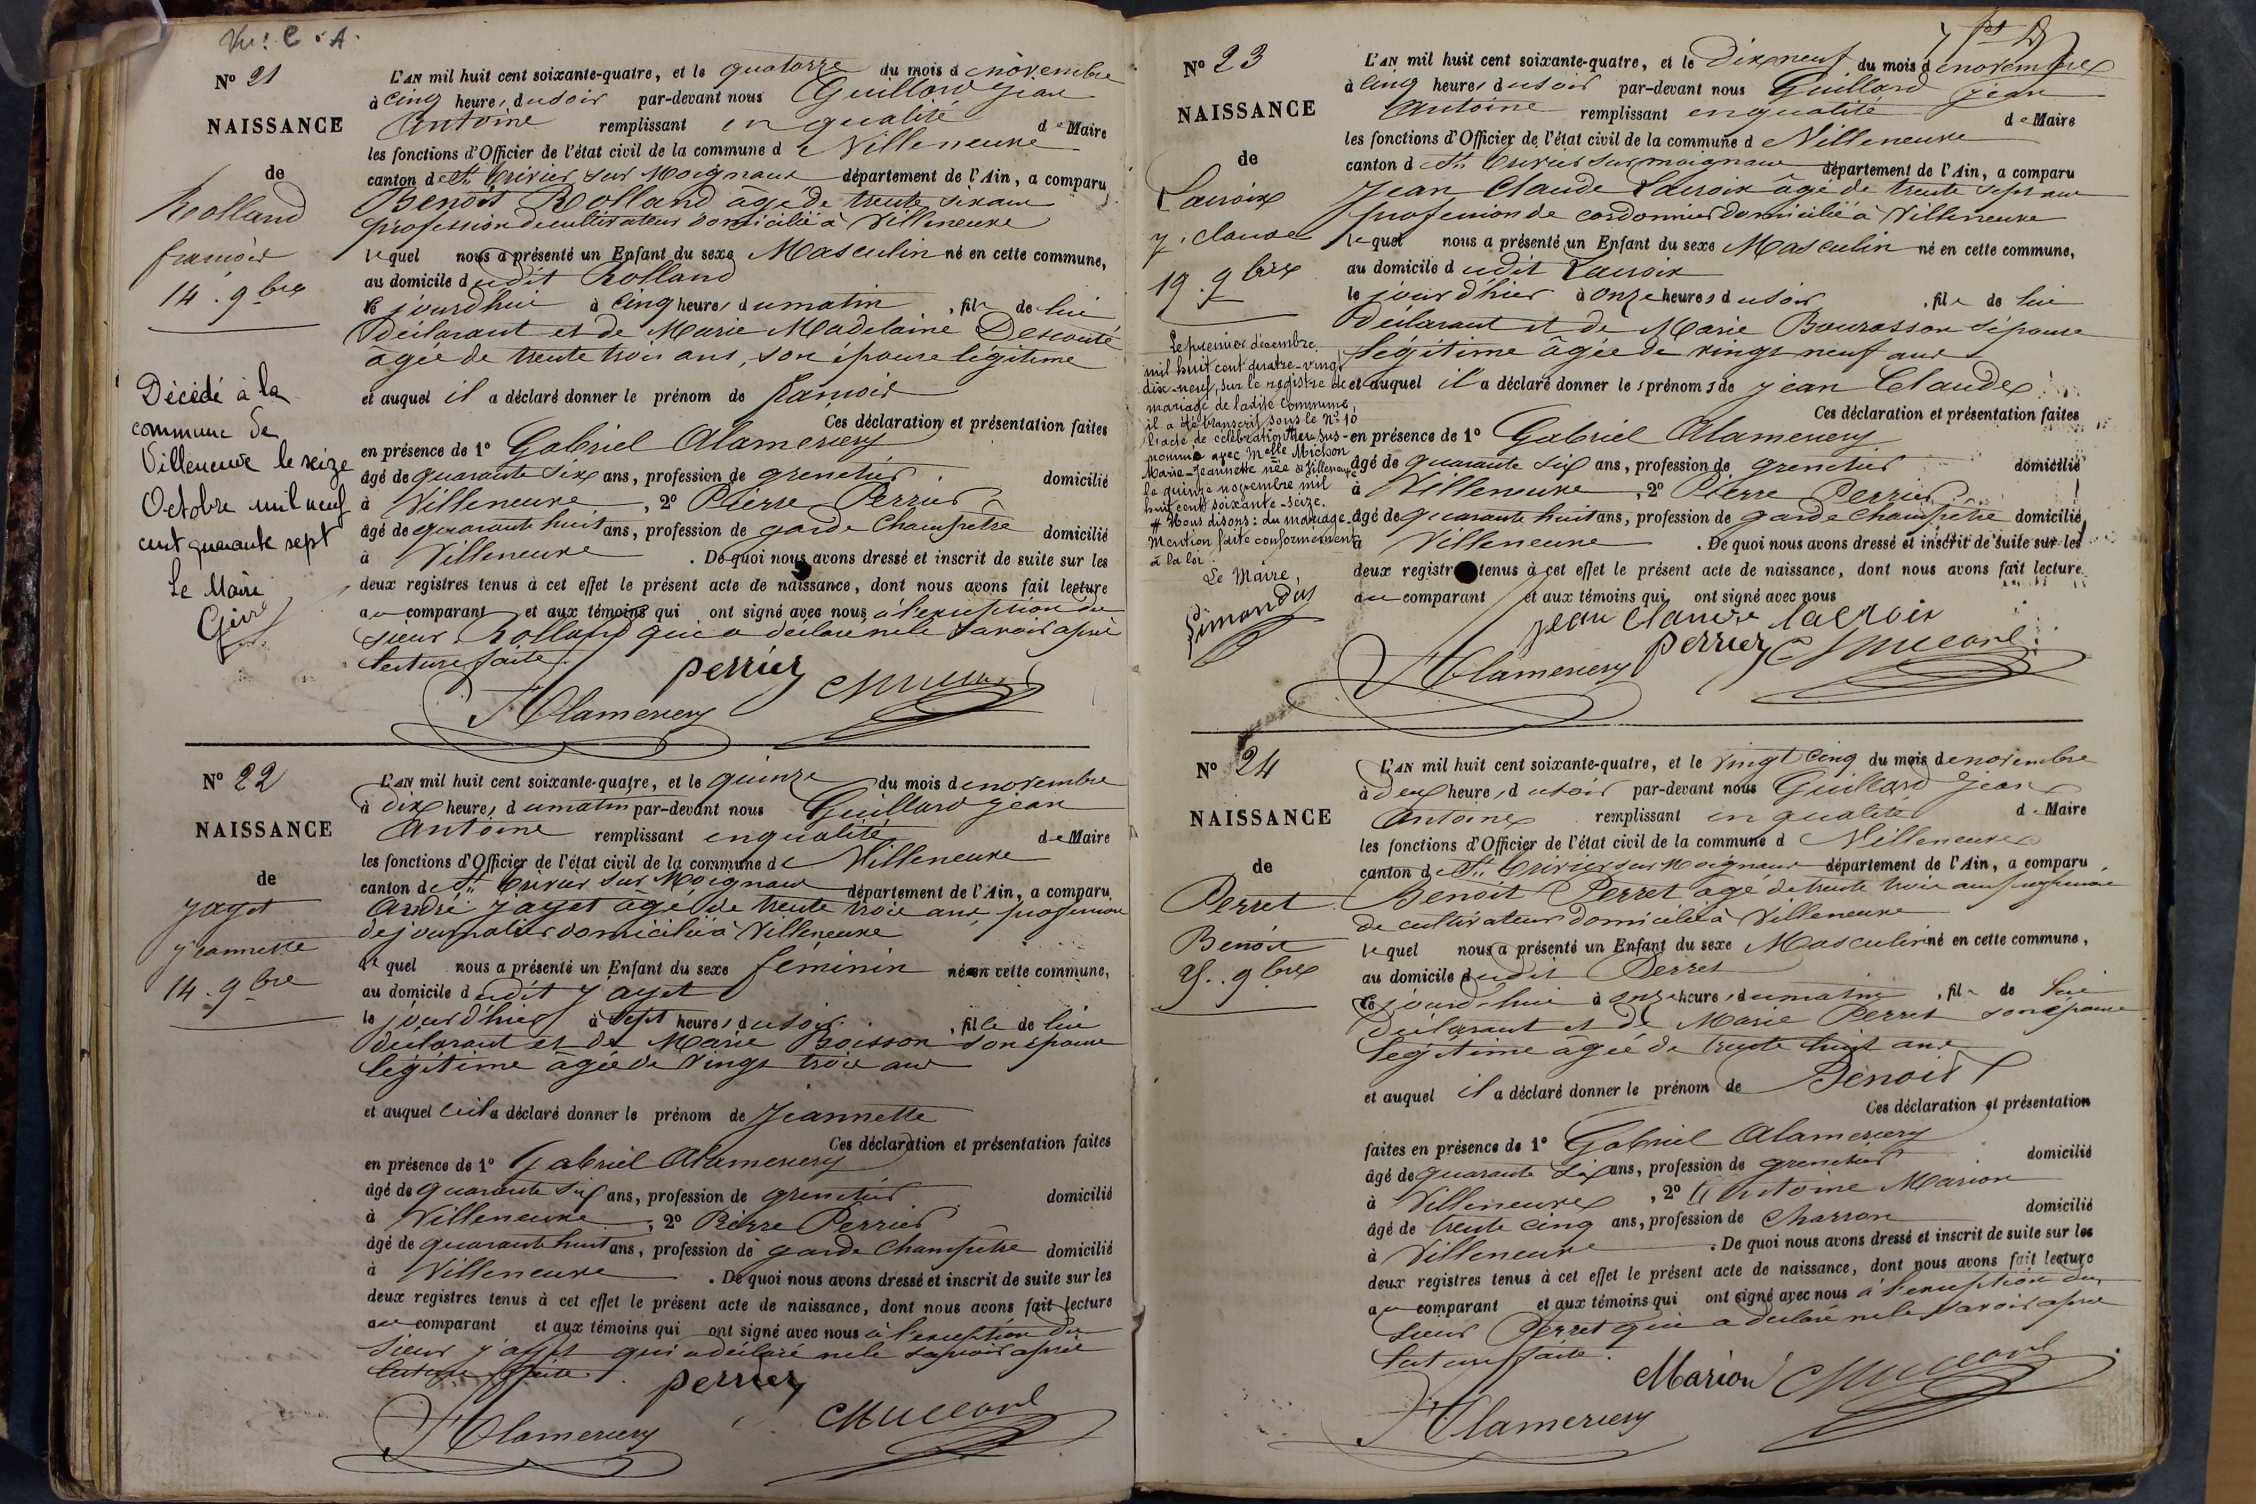 Vu : C. A.
N° 21
NAISSANCE
de
Rolland
francois
14. 9bre
Décédé à la
commune de
Villeneuve le seize
Octobre mil neuf
cent quarante sept
Le Maire
L'AN mil huit cent soixante-quatre, et le quatorze du mois de novembre
à cinq heures du soir par-devant nous Guillard jean
Antoine remplissant en qualité de Maire
les fonctions d'Officier de l'état civil de la commune de Villeneuve
canton de St Trivier sur Moignans département de l'Ain, a comparu
Benoit Rolland âgé de trente six ans
profession de cultivateur domicilié à Villeneuve
lequel nous a présenté un Enfant du sexe Masculin né en cette commune,
au domicile dudit Rolland
ce jourd'hui à cinq heures du matin, fils de lui
déclarant et de Marie Madelaine Descouté
âgée de trente trois ans, son épouse légitime
et auquel il a déclaré donner le prénom de françois
Ces déclaration et présentation faites
en présence de 1° Gabriel Alamercery
âgé de quarante six ans, profession de grenetier domicilié
à Villeneuve, 2° Pierre Perrier
âgé de quarante huit ans, profession de garde champêtre domicilié
à Villeneuve. De quoi nous avons dressé et inscrit de suite sur les
deux registres tenus à cet effet le présent acte de naissance, dont nous avons fait lecture
au comparant et aux témoins qui ont signé avec nous à l'exception du
sieur Rolland qui a déclaré ne le savoir après
lecture faite.
perrier
Alamercery
N° 22
NAISSANCE
de
jayet
jeannette
14. 9bre
L'AN mil huit cent soixante-quatre, et le quinze du mois de novembre
à dix heures du matin par-devant nous Guillard jean
Antoine remplissant en qualité de Maire
les fonctions d'Officier de l'état civil de la commune de Villeneuve
canton de St Trivier sur Moignans département de l'Ain, a comparu
André jayet âgé de trente trois ans, profession
de journalier domicilié à Villeneuve
lequel nous a présenté un Enfant du sexe féminin né en cette commune,
au domicile dudit jayet
le jour d'hier à sept heures du soir, fille de lui
déclarant et de Marie Boisson son épouse
légitime âgée de vingt trois ans
et auquel il a déclaré donner le prénom de Jeannette
Ces déclaration et présentation faites
en présence de 1° Gabriel Alamercery
âgé de quarante six ans, profession de grenetier domicilié
à Villeneuve, 2° Pierre Perrier
âgé de quarante huit ans, profession de garde champêtre domicilié
à Villeneuve. De quoi nous avons dressé et inscrit de suite sur les
deux registres tenus à cet effet le présent acte de naissance, dont nous avons fait lecture
au comparant et aux témoins qui ont signé avec nous à l'exception du
sieur jayet qui a déclaré ne le savoir après
lecture faite.
perrier
Alamercery
N° 23
NAISSANCE
de
Lacroix
j. claude
19. 9bre
Le premier décembre
mil huit cent quatre-vingt
dix-neuf, sur le registre de
mariage de ladite commune,
il a été transcrit sous le N° 10
l'acte de célébration # du sus-
nommé avec Melle Michon
Marie-Jeannette née à Villeneuve
le quinze novembre mil
huit cent soixante-seize.
# Nous disons : du mariage
Mention faite conformément
à la loi
Le Maire,
L'AN mil huit cent soixante-quatre, et le dix neuf du mois de novembre
à cinq heures du soir par-devant nous Guillard jean
Antoine remplissant en qualité de Maire
les fonctions d'Officier de l'état civil de la commune de Villeneuve
canton de St Trivier sur moignans département de l'Ain, a comparu
Jean Claude Lacroix âgé de trente sept ans
profession de cordonnier domicilié à Villeneuve
lequel nous a présenté un Enfant du sexe Masculin né en cette commune,
au domicile dudit Lacroix
le jour d'hier à onze heures du soir, fils de lui
déclarant et de Marie Bourasson s. épouse
légitime âgée de vingt neuf ans
et auquel il a déclaré donner les prénoms de jean Claude
Ces déclaration et présentation faites
en présence de 1° Gabriel Alamercery
âgé de quarante six ans, profession de grenetier domicilié
à Villeneuve, 2° Pierre Perrier
âgé de quarante huit ans, profession de garde champêtre domicilié
à Villeneuve. De quoi nous avons dressé et inscrit de suite sur les
deux registres tenus à cet effet le présent acte de naissance, dont nous avons fait lecture
au comparant et aux témoins qui ont signé avec nous
jean Claude lacroix
Alamercery perrier
N° 24
NAISSANCE
de
Perret
Benoit
25. 9bre
L'AN mil huit cent soixante-quatre, et le vingt cinq du mois de novembre
à deux heures du soir par-devant nous Guillard Jean
Antoine remplissant en qualité de Maire
les fonctions d'Officier de l'état civil de la commune de Villeneuve
canton de St Trivier sur Moignans département de l'Ain, a comparu
Benoit Perret âgé de trente trois ans profession
de cultivateur domicilié à Villeneuve
lequel nous a présenté un Enfant du sexe Masculin né en cette commune,
au domicile dudit Perret
ce jourd'hui à onze heures du matin, fils de lui
déclarant et de Marie Perret son épouse
légitime âgée de trente huit ans
et auquel il a déclaré donner le prénom de Benoit
Ces déclaration et présentation
faites en présence de 1° Gabriel Alamercery
âgé de quarante six ans, profession de grenetier domicilié
à Villeneuve, 2° Antoine Marion
âgé de trente cinq ans, profession de charron domicilié
à Villeneuve. De quoi nous avons dressé et inscrit de suite sur les
deux registres tenus à cet effet le présent acte de naissance, dont nous avons fait lecture
au comparant et aux témoins qui ont signé avec nous à l'exception du
sieur Perret qui a déclaré ne le savoir après
lecture faite.
Marion
Alamercery